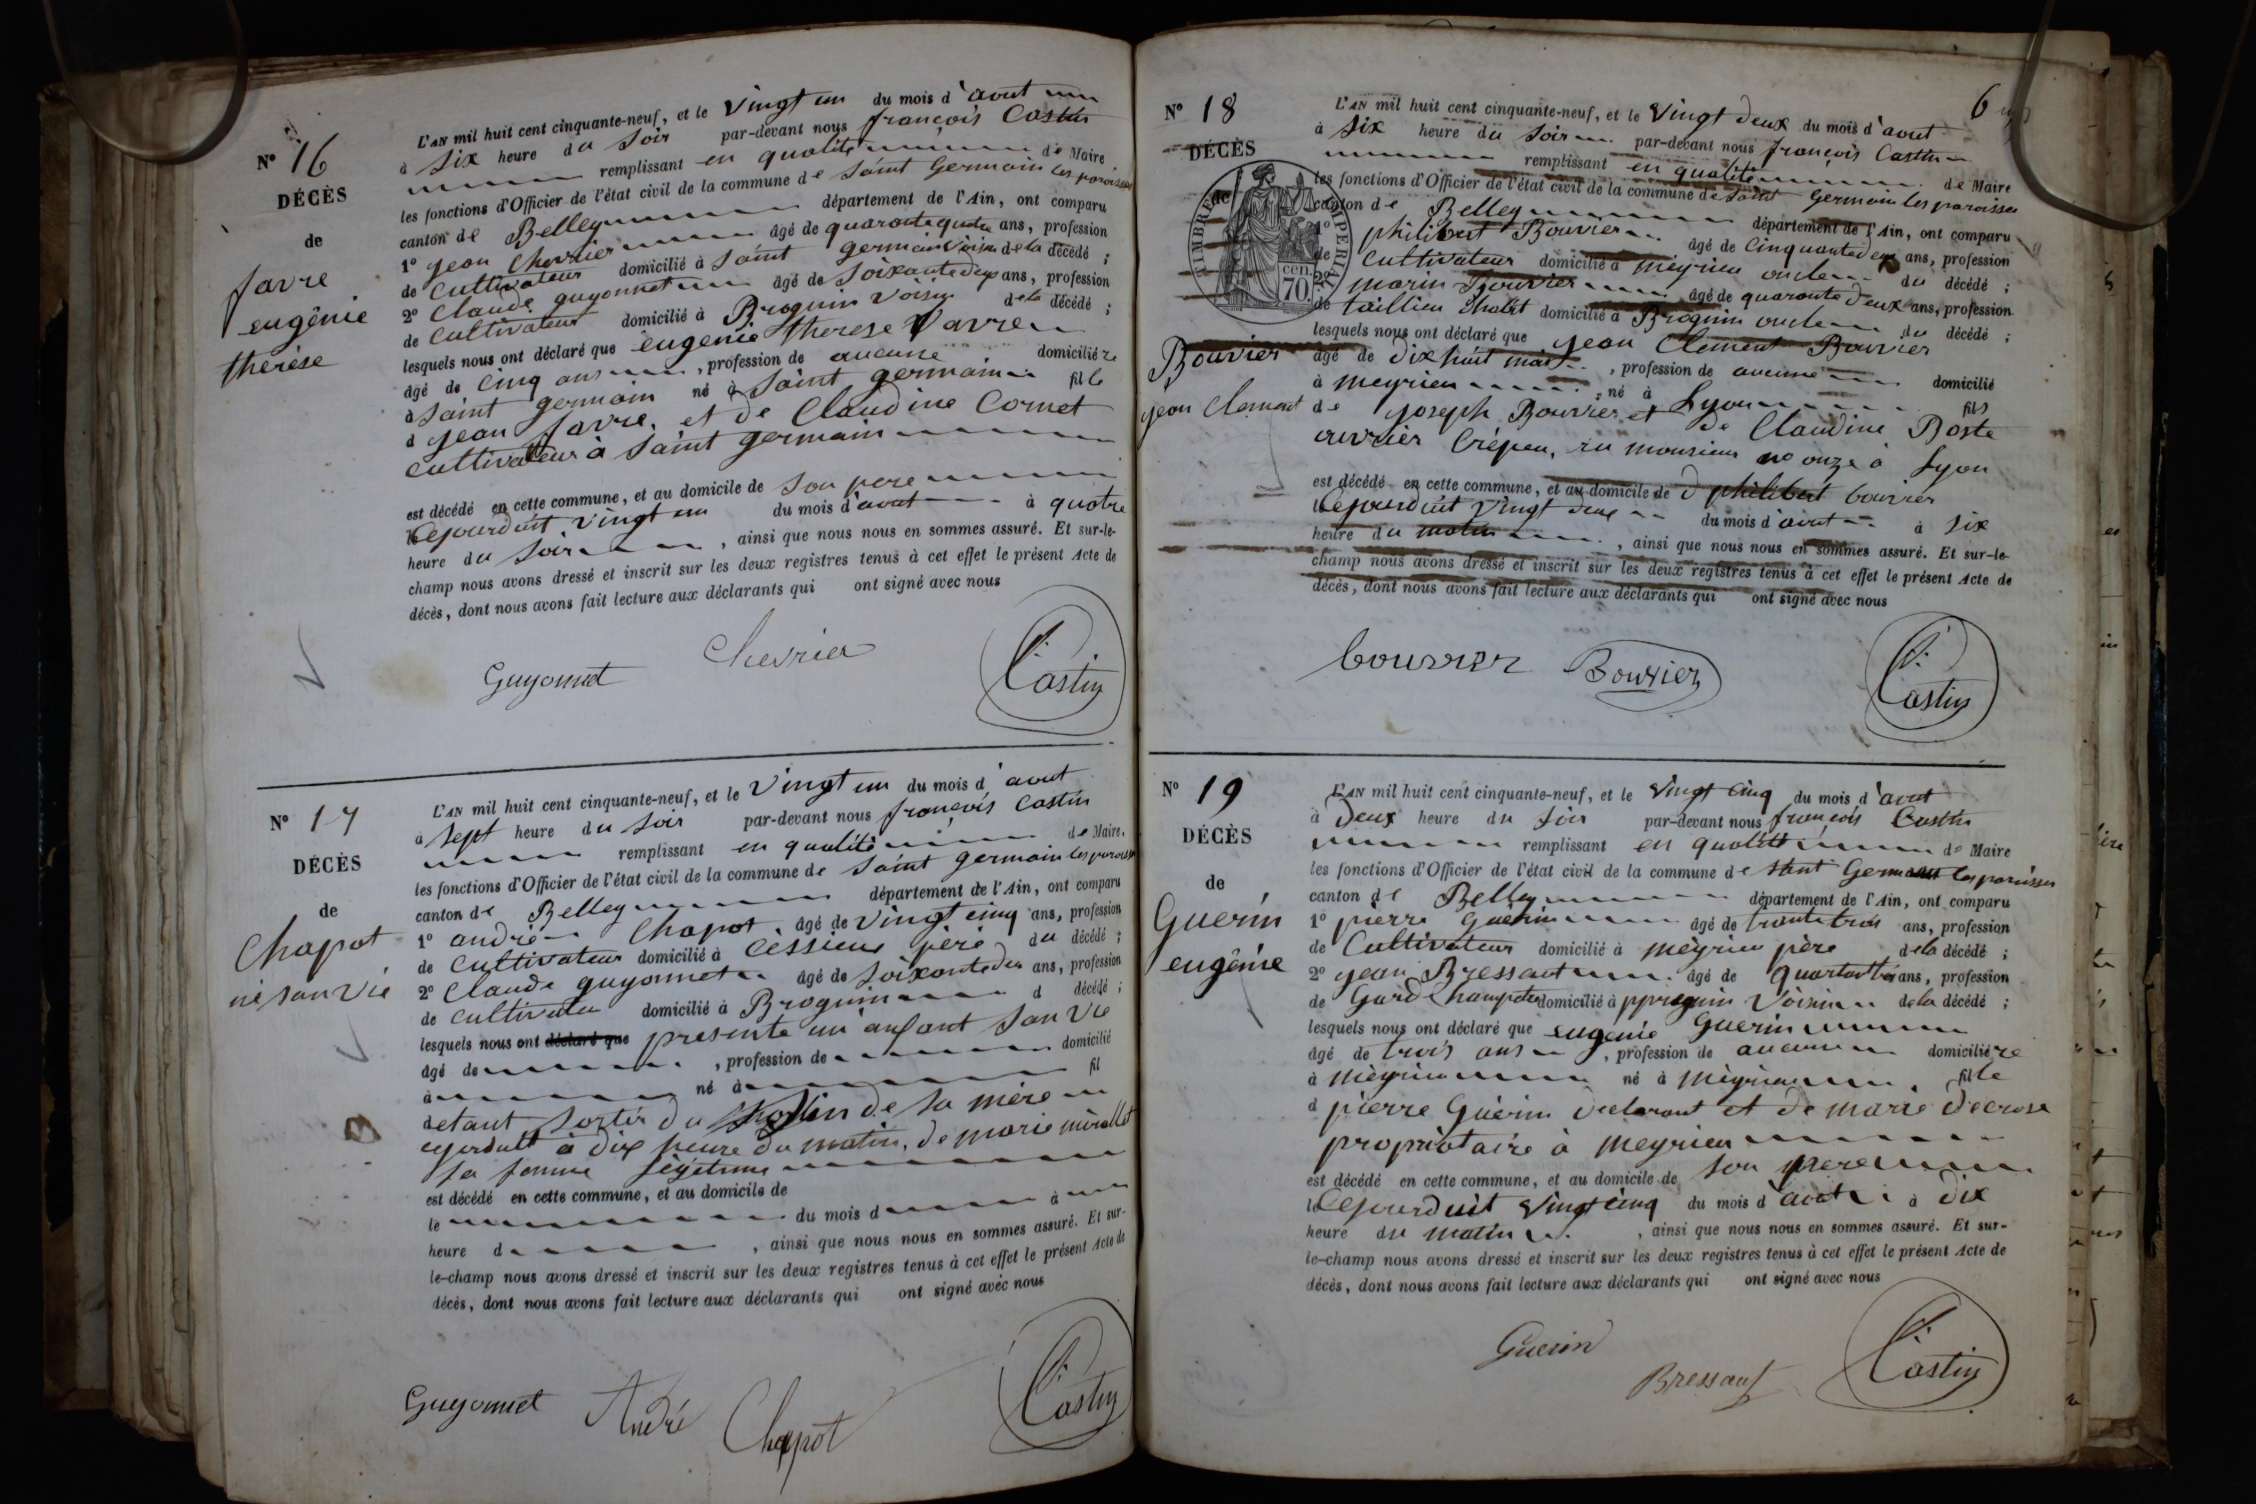 N° 16
DÉCÈS
de
favre
eugénie
therése
L'AN mil huit cent cinquante-neuf, et le vingt un du mois d'avout
à six heure du soir par-devant nous françois Castin
remplissant en qualité de Maire
les fonctions d'Officier de l'état civil de la commune de saint Germain les paroisses
canton de Belley département de l'Ain, ont comparu
1° jean Chevrier âgé de quarante quatre ans, profession
de cultivateur domicilié à saint germain voisin de la décédé ;
2° Claude guyonnet âgé de soixante deux ans, profession
de cultivateur domicilié à Brognin voisin de la décédé ;
lesquels nous ont déclaré que eugenie therese favre
âgé de cinq ans, profession de aucune domiciliére
à saint germain né à saint germain fille
d jean favre et de Claudine Cornet
cultivateur à saint germain
est décédé en cette commune, et au domicile de son pere
le cejourduit vingt un du mois d'avout à quatre
heure du soir, ainsi que nous nous en sommes assuré. Et sur-le-
champ nous avons dressé et inscrit sur les deux registres tenus à cet effet le présent Acte de
décès, dont nous avons fait lecture aux déclarants qui ont signé avec nous
Guyonnet Chevrier Castin
N° 17
DÉCÈS
de
Chapot
né san vie
L'AN mil huit cent cinquante-neuf, et le vingt un du mois d'avout
à sept heure du soir par-devant nous françois Castin
remplissant en qualité de Maire.
les fonctions d'Officier de l'état civil de la commune de saint germain les paroisses
canton de Belley département de l'Ain, ont comparu
1° andré Chapot âgé de vingt cinq ans, profession
de cultivateur domicilié à Cessieu père du décédé ;
2° Claude guyonnet âgé de soixante deux ans, profession
de cultivateur domicilié à Brognin d décédé ;
lesquels nous ont déclaré que presenté un anfant san vie
âgé de , profession de domicilié
à né à fil
detant sortir du de sa mère
cejorduit à dix heure du matin, de marie
sa femme
est décédé en cette commune, et au domicile de
le du mois d à
heure d , ainsi que nous nous en sommes assuré. Et sur-
le-champ nous avons dressé et inscrit sur les deux registres tenus à cet effet le présent Acte de
décès, dont nous avons fait lecture aux déclarants qui ont signé avec nous
Guyonnet André Chapot Castin
6
N° 18
DÉCÈS
de
TIMBRE IMPERIAL
70 cen.
Bouvier
jean Clement
L'AN mil huit cent cinquante-neuf, et le vingt deux du mois d'avout
à six heure du soir par-devant nous françois Castin
remplissant en qualité de Maire
les fonctions d'Officier de l'état civil de la commune de saint Germain les paroisses
canton de Belley département de l'Ain, ont comparu
1° philibert Bouvier âgé de cinquante deux ans, profession
de cultivateur domicilié à meyrieu oncle du décédé ;
marin Bouvier âgé de quarante deux ans, profession
de taillieu domicilié à Brognin oncle du décédé ;
lesquels nous ont déclaré que jean Clement Bouvier
âgé de dix huit mois, profession de aucune domicilié
à meyrieu, né à Lyon fils
de joseph Bouvier et de Claudine Boste
ouvrier Crépeu, ru monsieur no onze à Lyon
est décédé en cette commune, et au domicile de d philibert bouvier
le cejourduit vingt deux du mois d'avout à six
heure du matin, ainsi que nous nous en sommes assuré. Et sur-le-
champ nous avons dressé et inscrit sur les deux registres tenus à cet effet le présent Acte de
décès, dont nous avons fait lecture aux déclarants qui ont signé avec nous
bouvier Bouvier Castin
N° 19
DÉCÈS
de
Guerin
eugénie
L'AN mil huit cent cinquante-neuf, et le vingt cinq du mois d'avout
à deux heure du soir par-devant nous françois Castin
remplissant en qualité de Maire
les fonctions d'Officier de l'état civil de la commune de saint Germain les paroisses
canton de Belley département de l'Ain, ont comparu
1° pierre Guérin âgé de trante trois ans, profession
de Cultivateur domicilié à meyrieu père de la décédé ;
2° jean Bressant âgé de ans, profession
de Garde Champetre domicilié à voisin de la décédé ;
lesquels nous ont déclaré que eugenie Guerin
âgé de trois ans, profession de aucune domiciliére
à meyrieu né à meyrieu, fille
d pierre Guérin declarant et de marie decrose
propriataire à meyrieu
est décédé en cette commune, et au domicile de son pere
le cejourduit vingt cinq du mois d'avout à dix
heure du matin, ainsi que nous nous en sommes assuré. Et sur-
le-champ nous avons dressé et inscrit sur les deux registres tenus à cet effet le présent Acte de
décès, dont nous avons fait lecture aux déclarants qui ont signé avec nous
Guerin Bressant Castin